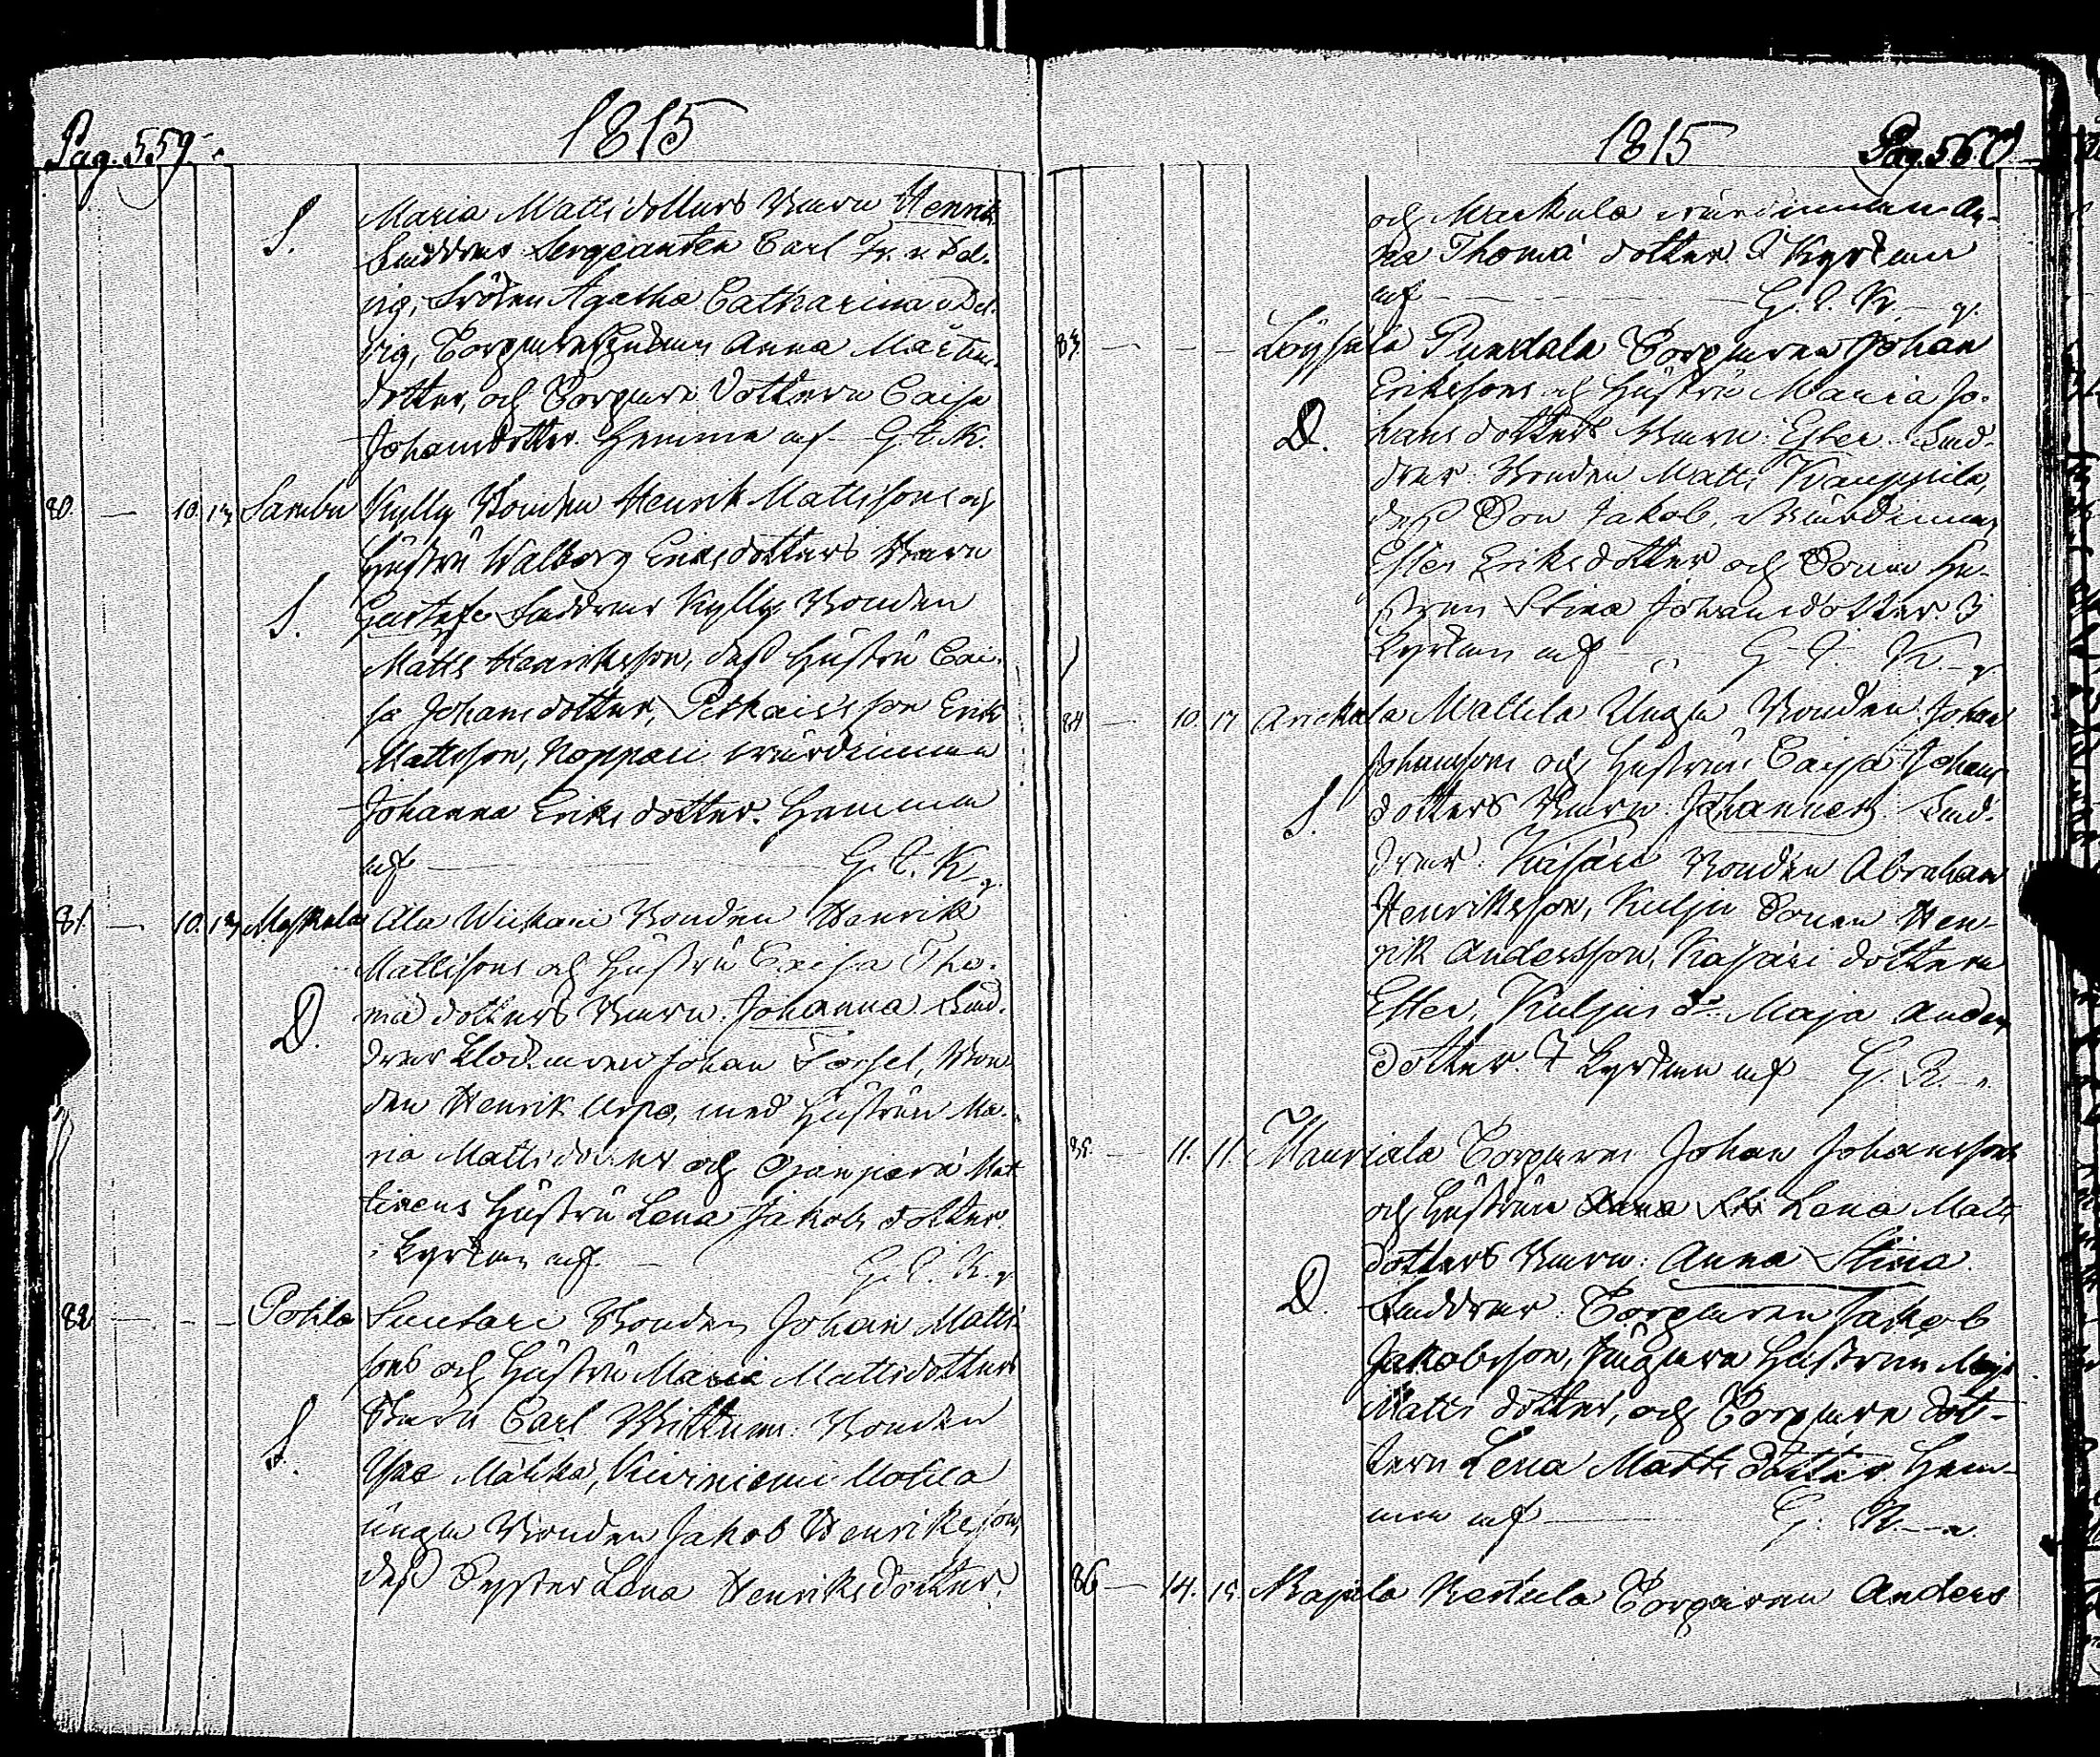 Pag. 559.
1815
S. Maria Mattsdotters Barn Henrik
Faddrar Sergeanten Carl Fr. v Del-
vig, Fröken Agatha Catharina v Del-
vig, Torparehustrun Anna Mårtens-
dotter, och Torpare Dottern Caisa
Johansdotter. Hemma af G. E. K.
80. — 10. 13 Sarabu Kylly Bonden Henrik Mattssons och
Hustru Walborg Eriksdotters Barn
S. Gustaf. Faddrar Kylly Bonden
Matts Henriksson, dess Hustru Cai-
sa Johansdotter, Erik
Mattsson, Noppari wärdinnan
Johanna Eriksdotter. Hemma
af — G. E. K.
81. — 10. 13 Maskala Ala Bonden Henrik
Mattssons och Hustru Caisa Tho-
D. mædotters Barn. Johanna. Fad-
drar Klockaren Johan Forssel, Bon-
den Henrik Arpo, med Hustrun Ma-
ria Mattsdotter och Mat
Hustru Lena Jakobsdotter
i Kyrkan af. — G. E. K.
82. — — — Potila Suutari Bonden Johan Matts-
sons och Hustru Maria Mattsdotters
Barn Carl Vittnen: Bonden
S. Motila
unga Bonden Jakob Henriksson,
dess Syster Lena Henriksdotter,
1815
Pag. 560
och Markula wärdinnan An-
na Thomædotter. I Kyrkan
af — G. E. K.
83. — — — Löysälä Pundala Torparen Johan
Erikssons och Hustru Maria Jo-
D. hansdotters Barn: Ester. Fad-
drar: Bonden Matts Kauppila,
dess Son Jakob, Wärdinnan
Ester Eriksdotter och Sone Hu-
strun Stina Johansdotter. I
Kyrkan af — G. E. K.
84 — 10. 17 Anekala Mattila Unga Bonden Johan
Johanssons och Hustruns Caisa Johans
S. dotters Barn: Johannes. Fad-
drar: Kasari Bonden Abraham
Henriksson, Kulju Sonen Hen-
rik Andersson, Kasari dottern
Ester, Kuljus do. Maja Anders
dotter. I Kyrkan af G. R.
85. — 11. 11. Mauriala Torparen Johan Johanssons
och Hustrun Lena Matts
dotters Barn: Anna Stina.
D. Faddrar: Torparen Jakob
Jakobsson, Hustrun Maja
Mattsdotter, och Torpare dot-
tern Lena Mattsdotter. Hem-
ma af — G. R.
86 — 14. 15. Rajala Torparen Anders